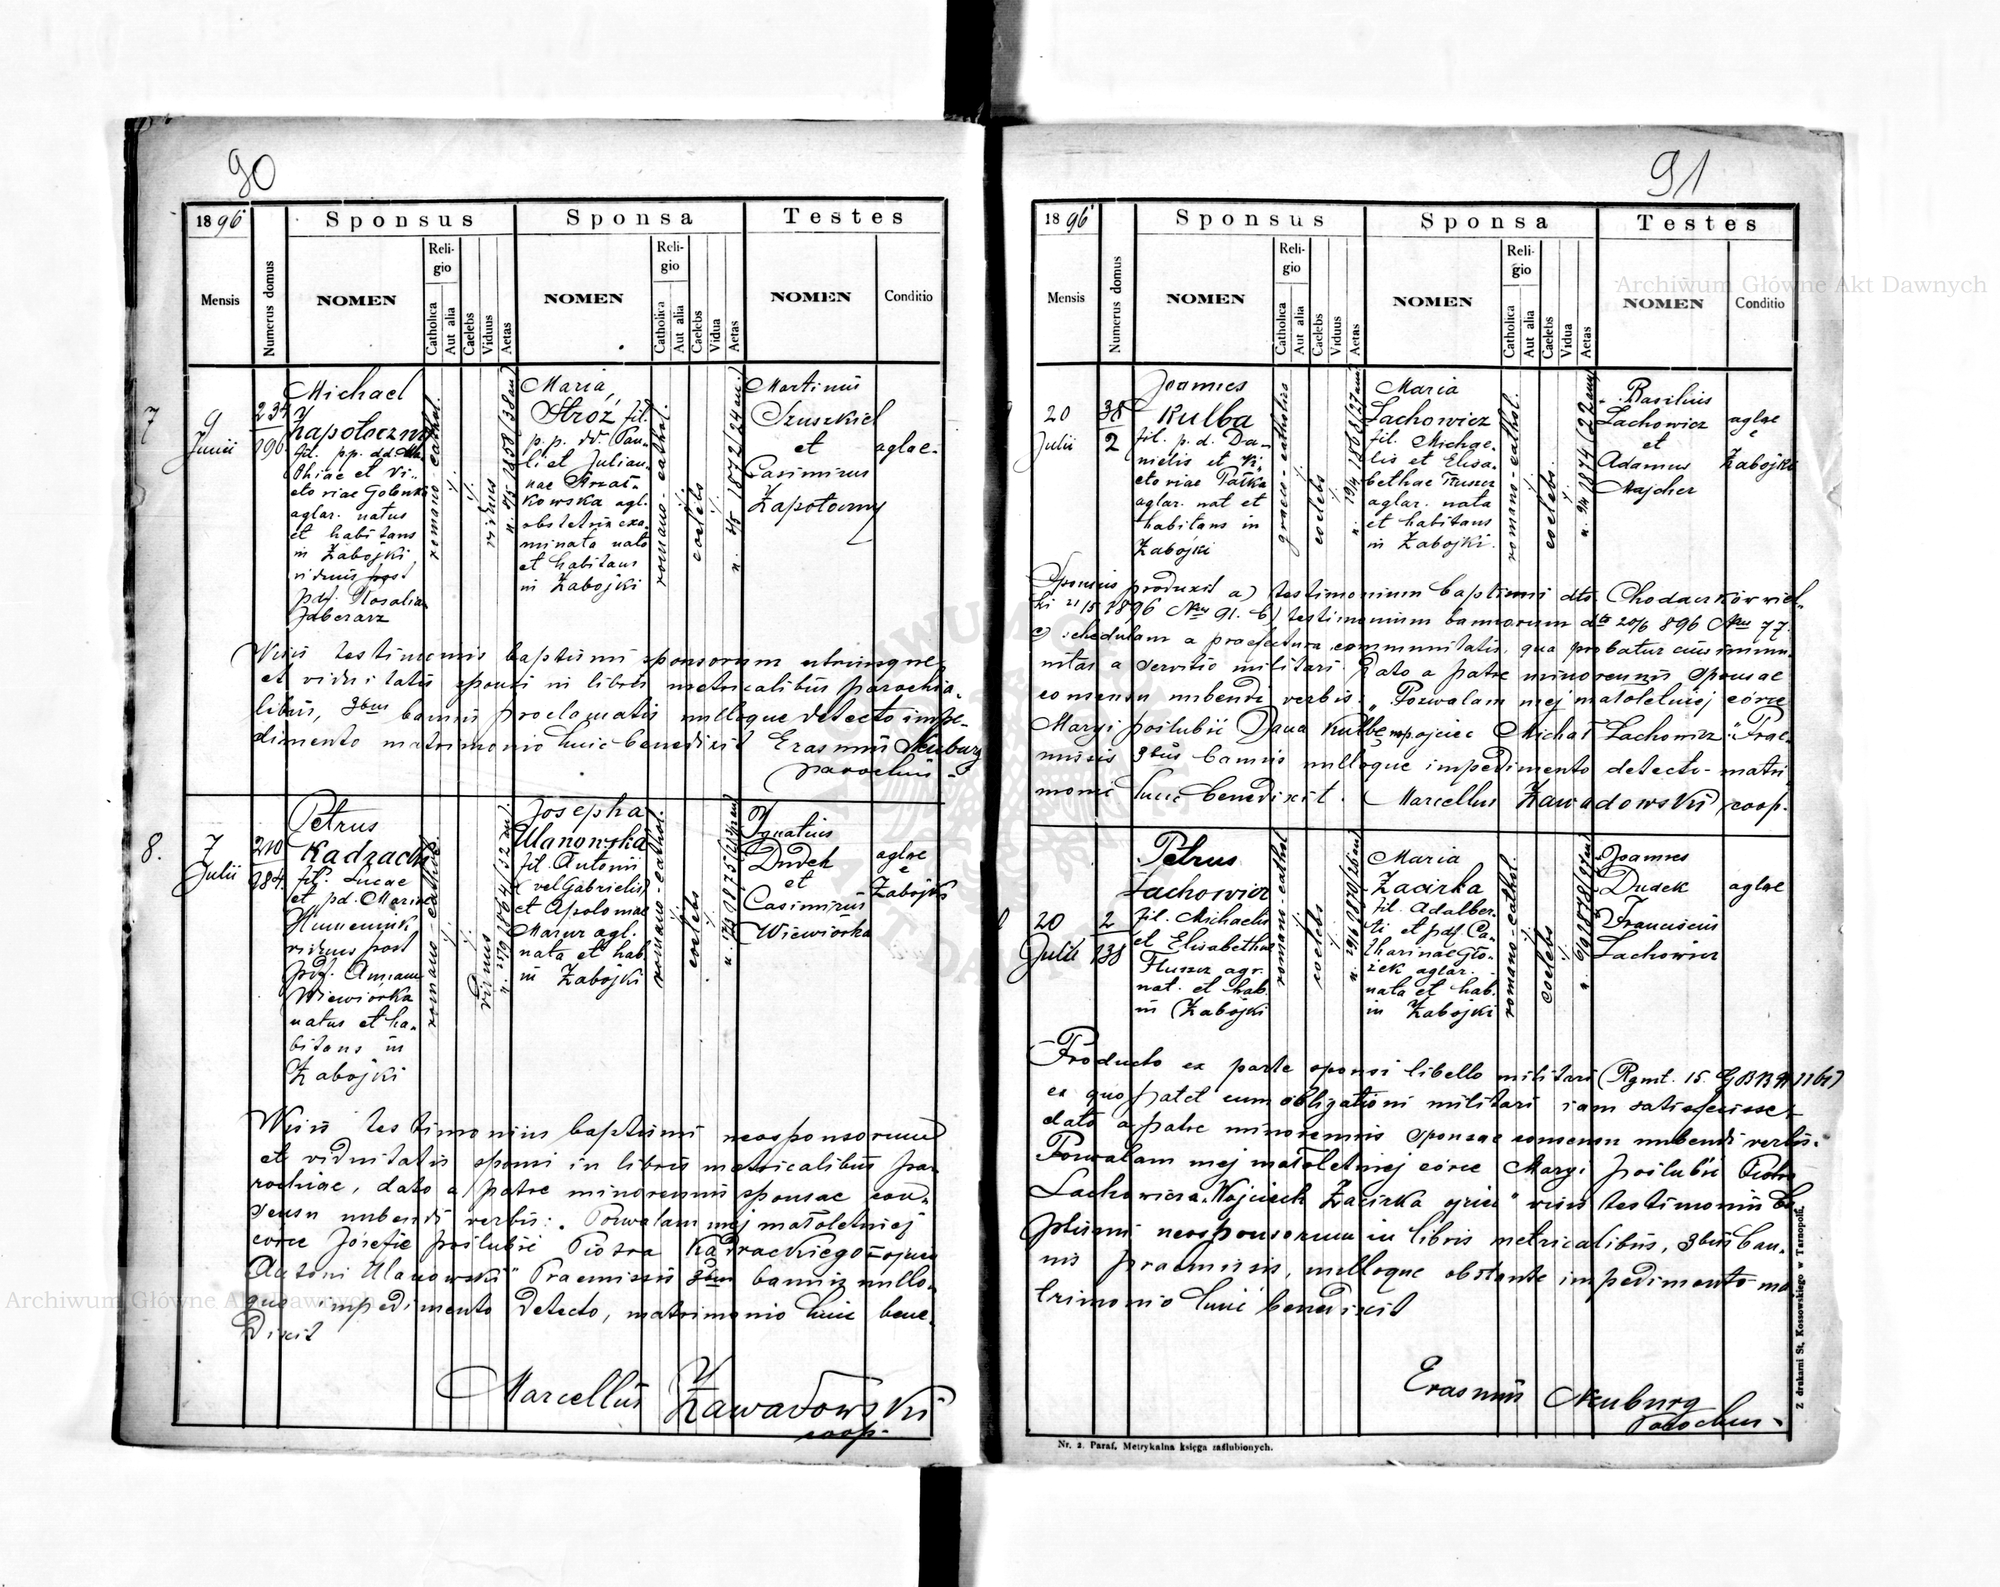 90
1896
Sponsus
Sponsa
Testes
Mensis
Numerus domus
NOMEN
Religio
Catholica
Aut alia
Caelebs
Viduus
Aetas
NOMEN
Religio
Catholica
Aut alia
Caelebs
Vidua
Aetas
NOMEN
Conditio
7
9
Junii
234
196
Michael
Zapotoczny
fil. pp. dd.
et Vi-
ctoriae
aglar. natus
et habitans
in Zabojki
viduus post
pdf. Rosalia
romano-cathol.
viduus
Maria
Stróż fil.
p.p. dd. Pau-
li et Julian-
nae
kowska agl.
obstetrix exa-
minata nata
et habitans
in Zabojki
romano-cathol.
coelebs
Martinus
Szuszkiel
et
Casimirus
Zapotoczny
aglae.
Visis testimoniis baptismi sponsorum utriusque
et viduitatis sponsi in libris metricalibus parochia-
libus, 3bus bannis proclamatis nulloque detecto impe-
dimento matrimonio huic benedixit Erasmus Neuburg
parochus
8.
7
Julii
210
184
Petrus
Kadzacki
fil. Lucae
et pd. Mariae
Humeniuk
viduus post
pdf. Annam
Wiewiórka
natus et ha-
bitans in
Zabojki
romano-catholic.
viduus
Josepha
Ulanowska
fil. Antonii
(vel Gabrielis)
et Apoloniae
Mazur agl.
nata et hab.
in Zabojki
romano-cathol.
coelebs
Ignatius
Dudek
et
Casimirus
Wiewiórka
aglae
e
Zabojki
Visis testimoniis baptismi neosponsorum
et viduitatis sponsi in libris metricalibus pa-
rochiae, dato a patre minorennis sponsae con-
sensu nubendi verbis: „Pozwalam mej małoletniej
córce Józefie poślubić Piotra Kadzackiego ojciec
Antoni Ulanowski" Praemissis 3bus bannis nullo-
que impedimento detecto, matrimonio huic bene-
dixit
Marcellus Zawadowski
coop.
91
1896
Sponsus
Sponsa
Testes
Mensis
Numerus domus
NOMEN
Religio
Catholica
Aut alia
Caelebs
Viduus
Aetas
NOMEN
Religio
Catholica
Aut alia
Caelebs
Vidua
Aetas
NOMEN
Conditio
20
Julii
38
2
Joannes
Kulba
fil. p. d. Da-
nielis et Vi-
ctoriae Pałka
aglar. nat et
habitans in
Zabojki
graeco-catholicus
coelebs
Maria
Lachowicz
fil. Michae-
lis et Elisa-
bethae Fluszcz
aglar. nata
et habitans
in Zabojki.
romano-cathol.
coelebs
Basilius
Lachowicz
et
Adamus
Majcher
aglae
e
Zabojki
Sponsus produxit a) testimonium baptismi dto Chodaczków wiel-
ki 21/5 1896 Nru 91. b) testimonium bannorum dto 20/6 896 Nru 77.
c) schedulam a praefectura communitatis, qua probatur eius immu-
nitas a servitio militari. Dato a patre minorennis sponsae
consensu nubendi verbis: „Pozwalam mej małoletniej córce
Maryi poślubić Dana Kulbę ojciec Michał Lachowicz" Prae-
missis 3bus bannis nulloque impedimento detecto matri
monio huic benedixit. Marcellus Zawadowski coop.
20
Julii
2
138
Petrus
Lachowicz
fil. Michaelis
et Elisabethae
Fluszcz agr.
nat. et hab.
in Zabojki
romano-cathol
coelebs
Maria
Zacirka
fil. Adalber-
ti et pdf Ca-
tharinae Gło-
zek aglar.
nata et hab.
in Zabojki
romano-cathol.
coelebs
Joannes
Dudek
Franciscus
Lachowicz
aglae
Producto ex parte sponsi libello militari (Rgmt. 15.
ex quo patet eum obligationi militari iam satisfecisse,
dato a patre minorennis sponsae consensu nubendi verbis:
Pozwalam mej małoletniej córce Maryi poślubić Piotra
Lachowicza. Wojciech Zacirka ojciec" visis testimoniis ba
ptismi neosponsorum in libris metricalibus, 3bus ban-
nis praemissis, nulloque obstante impedimento ma
trimonio huic benedixit
Erasmus Neuburg
Parochus
Nr. 2. Paraf. Metrykalna księga zaślubionych.
Z drukarni St. Kossowskiego w Tarnopolu.
Archiwum Główne Akt Dawnych
Archiwum Główne Akt Dawnych